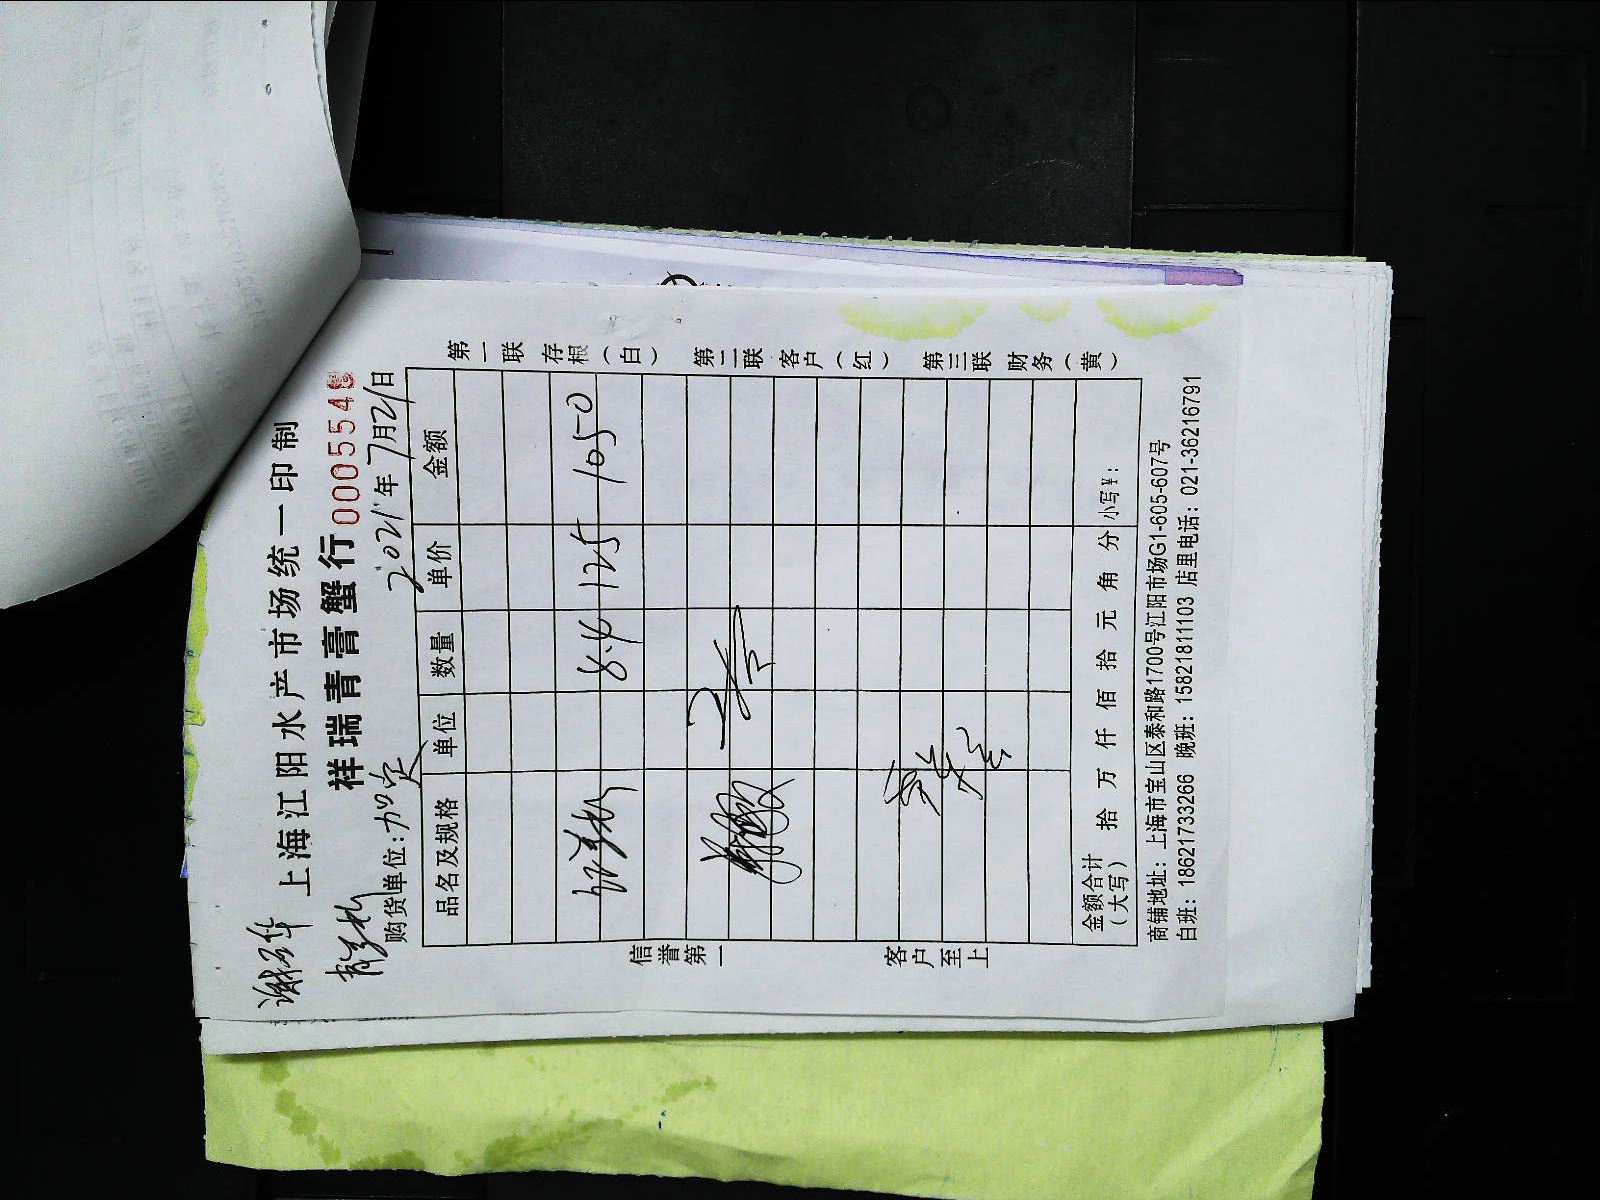 上海江阳水产市场统一印制
祥瑞青膏蟹行 000554
购货单位:加定 2021年7月21日
品名及规格 单位 数量 单价 金额
8.4 125 1050
金额合计(大写) 拾 万 仟 佰 拾 元 角 分 小写¥:
商铺地址: 上海市宝山区泰和路1700号江阳市场G1-605-607号
白班: 18621733266 晚班: 15821811103 店里电话: 021-36216791
第一联 存根(白) 第二联 客户(红) 第三联 财务(黄)
信誉第一 客户至上